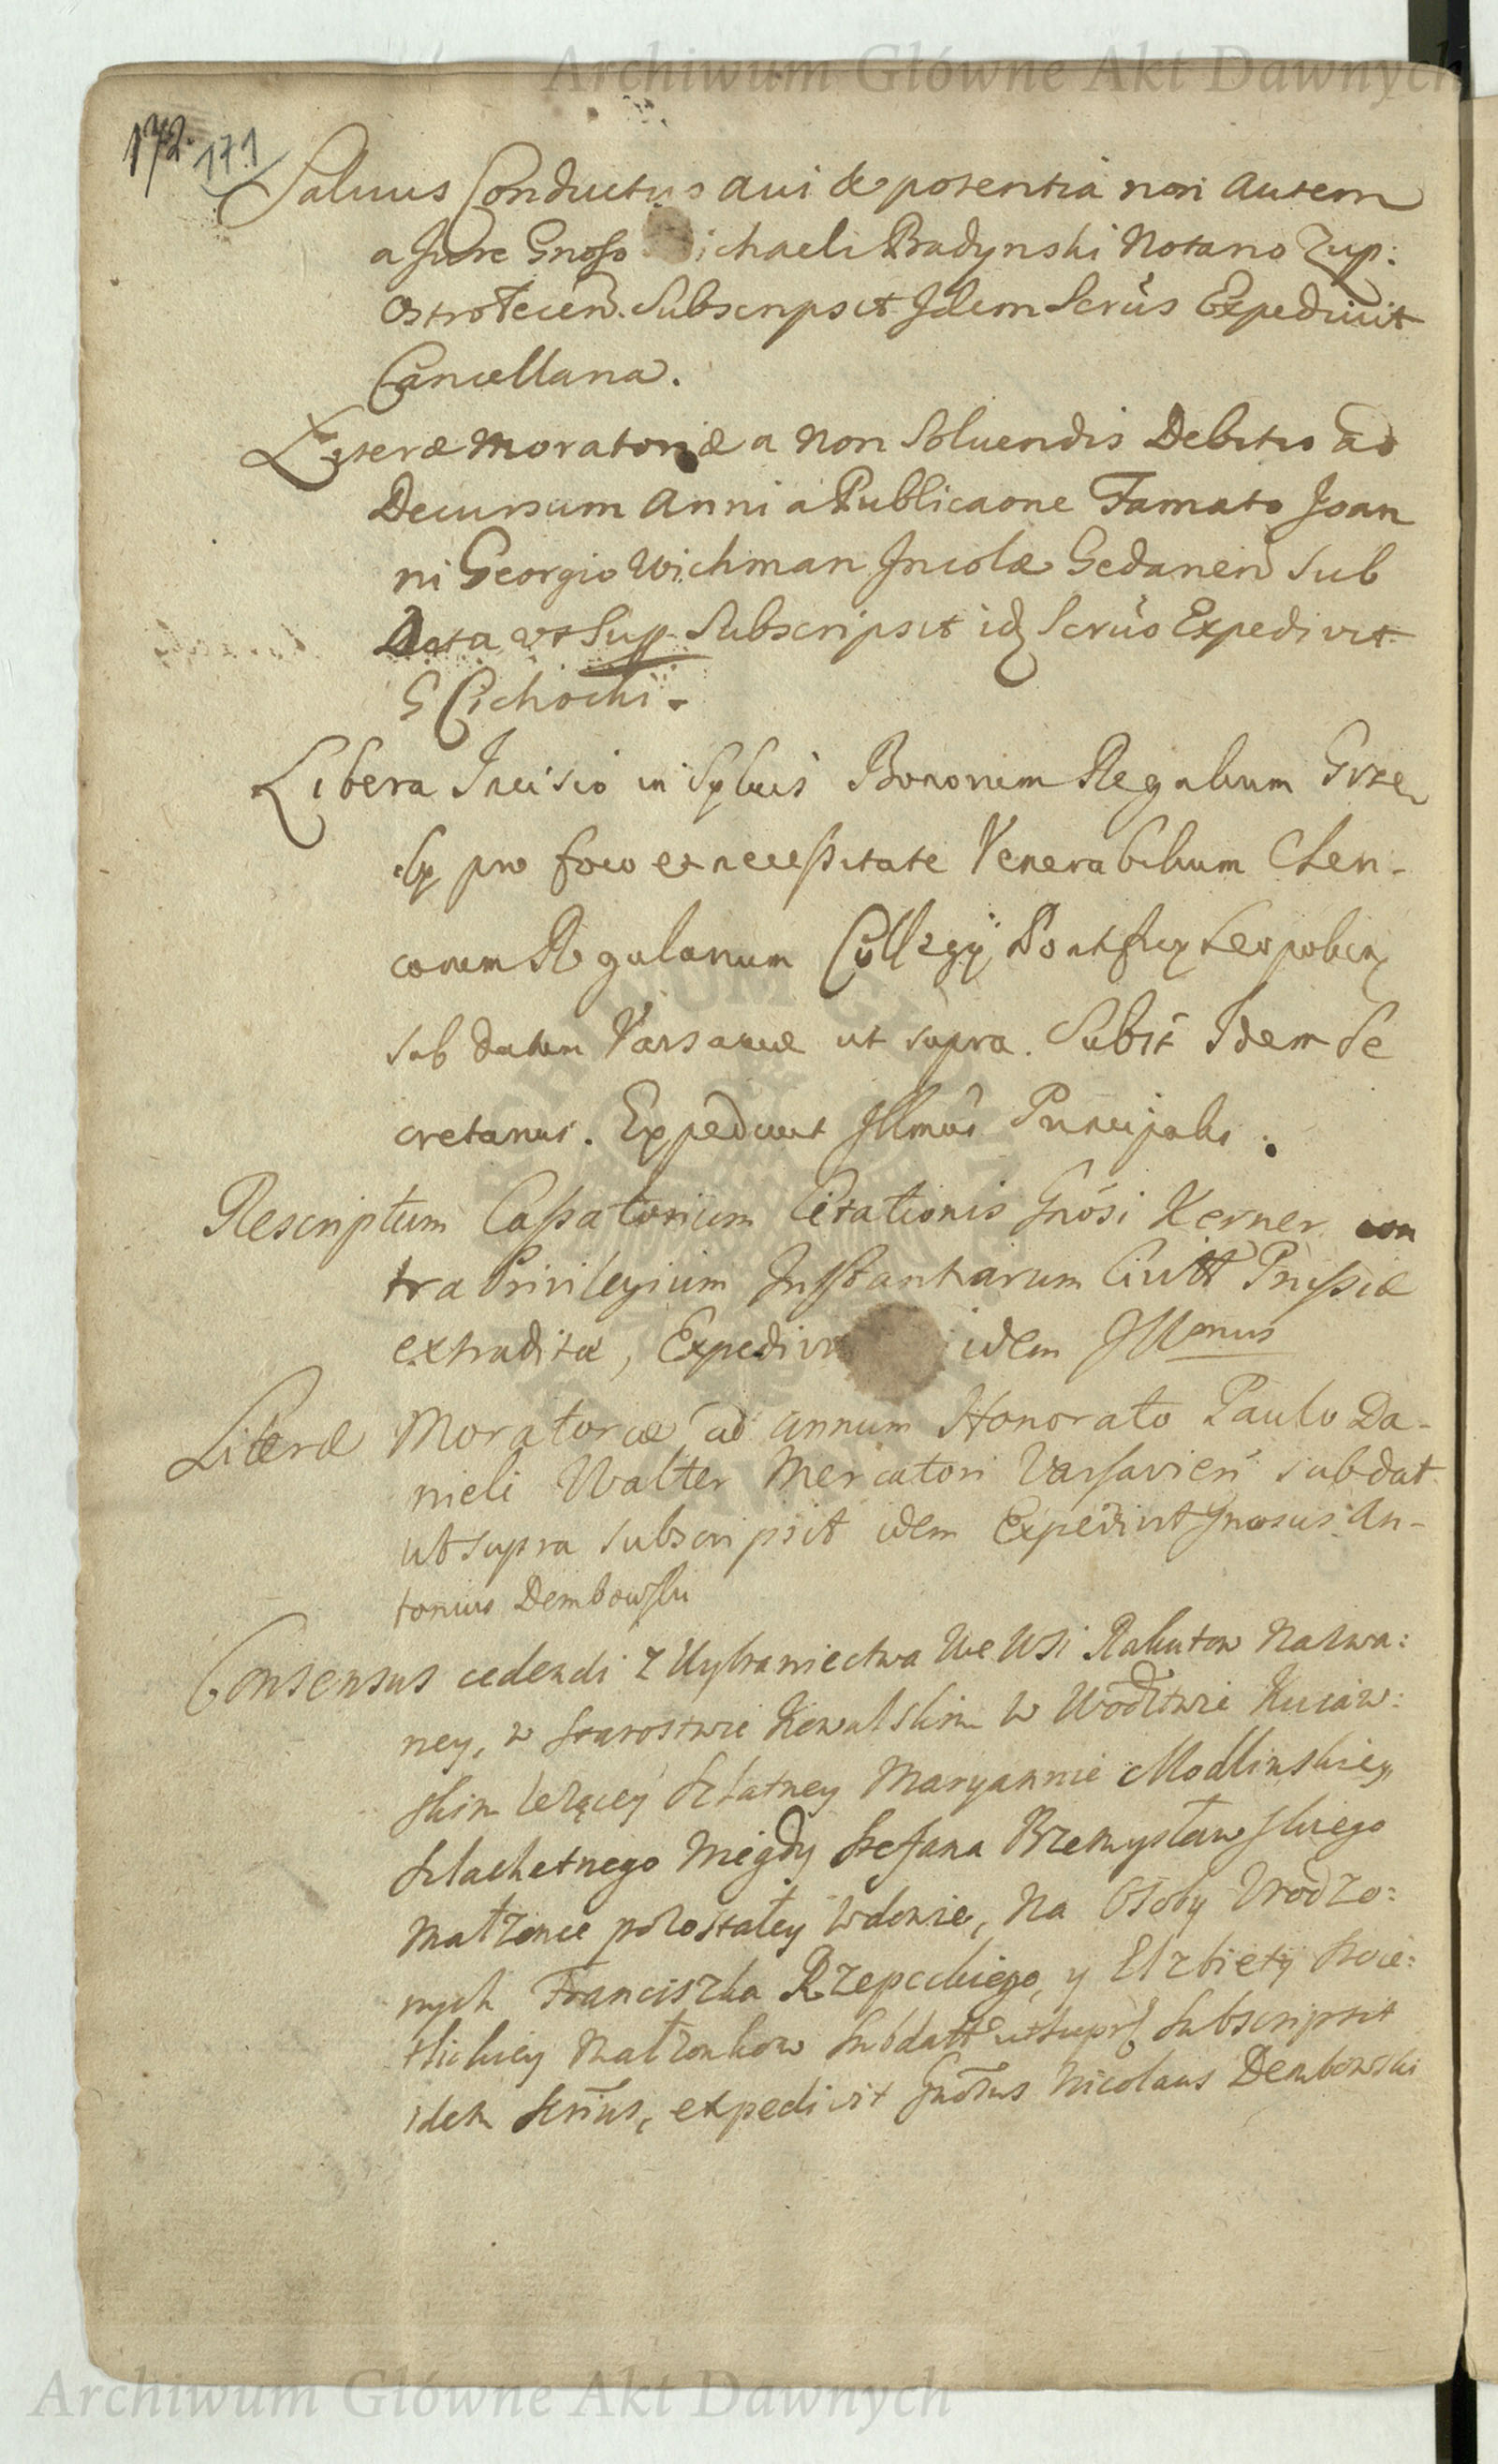 Archiwum Główne Akt Dawnych
172. 171
Salvus Conductus a vi & potentia non autem
a Jure Gnoso Michaeli Bradynski Notario Zup:
Ostrołecen. Subscripsit Idem Scrius Expedivit
Cancellaria.
Literæ Moratoriæ a non Soluendis Debitis ad
Decursum Anni a Publicaone Famato Joan
ni Georgio Wichman Incolæ Gedanen sub
Data ut Sup Subscripsit idq Scrius Expedivit
G Cichocki.
Libera Incisio in Sylvis Bonorum Regalium
pro foco et necessitate Venerabilium Cleri-
corum Regularium Collegij Pontificij Leopolien
sub datum Varsaviæ ut supra. Subst Idem Se
cretarius. Expedivit Illmus Principalis.
Rescriptum Cassatorium Citationis Gnosi Kerner con
tra Privilegium Instantiarum Civitt Prussiæ
extraditæ, Expedivit idem Illmus
Literæ Moratoriæ ad annum Honorato Paulo Da-
nieli Walter Mercatori Varsavien sub dat
ut supra subscripsit idem Expedivit Gnosus An-
tonius Dembowski
Consensus cedendi z Wybraniectwa we Wsi Rakutow nazwa:
ney, w starostwie Kowalskim w Wodztwie Kuiaw:
skim leżącey Szlatney Maryannie Modlinskiey
Szlachetnego niegdy Stefana Przemysławskiego
małżonce pozostałey wdowie, na Osoby Vrodzo:
nych Franciszka Rzepeckiego, y Elzbiety
małżonkow sub datt ut supra Subscripsit
idem Scrius, expedivit Gnosus Nicolaus Dembowski
Archiwum Główne Akt Dawnych